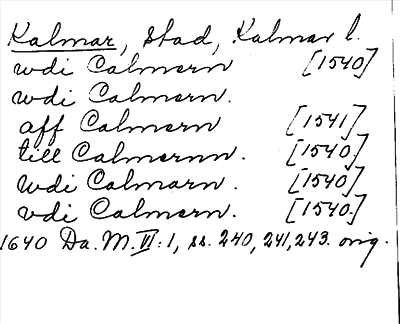 Kalmar, stad, Kalmar l.
wdi Calmern [1540]
wdi Calmern.
aff Calmern [1541]
till Calmernn. [1540]
wdi Calmarn. [1540]
vdi Calmern. [1540.]
1640 Da. M. VI: 1, ss. 240, 241, 243. orig.